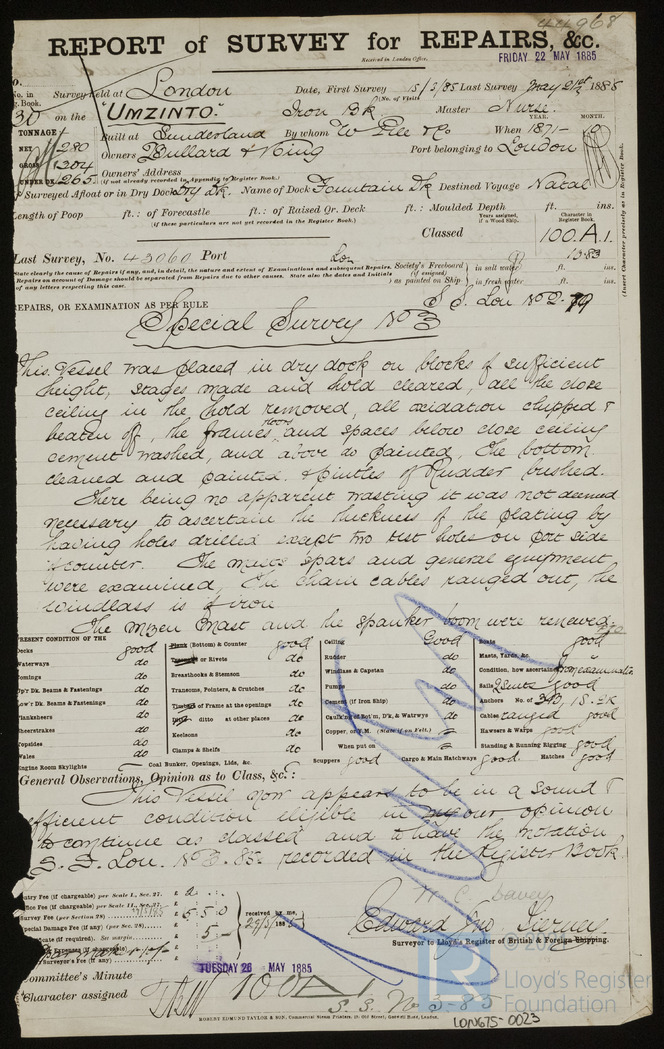 44968
REPORT of SURVEY for REPAIRS, &c.
Received in London Office,
FRIDAY 22 MAY 1885
Survey held at London Date, First Survey 15/5/85 Last Survey May 21st 1885
(No. of Visits
No. in Reg. Book.
30 on the "UMZINTO" Iron Bk Master Nurse
TONNAGE
YEAR. MONTH.
Built at Sunderland By whom W Pile & Co When 1871 - 10
NET 1280
GROSS 1304
UNDER DK 1265
Owners Bullard & King Port belonging to London
Owners' Address
(if not already recorded in Appendix to Register Book.)
If Surveyed Afloat or in Dry Dock Dry Dk. Name of Dock Fountain Dk Destined Voyage Natal
Length of Poop ft.: of Forecastle ft.: of Raised Qr. Deck ft.: Moulded Depth ft. ins.
(if these particulars are not yet recorded in the Register Book.)
Years assigned, if a Wood Ship.
Character in Register Book.
Classed 100.A.1.
(Insert Character precisely as in Register Book.)
Last Survey, No. 43060 Port Lon
State clearly the cause of Repairs if any, and, in detail, the nature and extent of Examinations and subsequent Repairs.
Repairs on account of Damage should be separated from Repairs due to other causes. State also the dates and Initials
of any letters respecting this case.
Society's Freeboard (if assigned) as painted on Ship
in salt water ft. ins.
in fresh water ft. ins.
S.S. Lon No 2. 79
REPAIRS, OR EXAMINATION AS PER RULE
Special Survey No 3
This Vessel was placed in dry dock on blocks of sufficient
height, stages made and hold cleared, all the close
ceiling in the hold removed, all oxidation chipped &
beaten off, the frames floors and spaces below close ceiling
cement washed, and above do painted, the bottom
cleaned and painted. & pintles of Rudder bushed.
There being no apparent wasting it was not deemed
necessary to ascertain the thickness of the plating by
having holes drilled except two test holes on port side
& counter. The masts spars and general equipment
were examined. The chain cables ranged out, the
windlass is of iron.
The mizen mast and the spanker boom were renewed
PRESENT CONDITION OF THE
Decks good
Waterways do
Comings do
Up'r Dk. Beams & Fastenings do
Low'r Dk. Beams & Fastenings do
Planksheers do
Sheerstrakes do
Topsides do
Wales do
Engine Room Skylights
Plank (Bottom) & Counter good
Treenails or Rivets do
Breasthooks & Stemson do
Transoms, Pointers, & Crutches do
Timbers of Frame at the openings do
Ditto ditto at other places do
Keelsons do
Clamps & Shelfs do
Coal Bunker, Openings, Lids, &c.
Ceiling Good
Rudder do
Windlass & Capstan do
Pumps do
Cement (if Iron Ship) do
Caulking of Bot'm, D'k, & Watrwys do
Copper, or Y.M. (State if on Felt.)
When put on
Scuppers good Cargo & Main Hatchways good
Boats good
Masts, Yards, &c. do
Condition, how ascertained from examination
Sails 2 Suits good
Anchors No. of 3 B, 1 S. 2 K
Cables ranged good
Hawsers & Warps good
Standing & Running Rigging good
Hatches good
General Observations, Opinion as to Class, &c.:
This Vessel now appears to be in a sound &
efficient condition eligible in my our opinion
to continue as classed and to have the notation
S.S. Lon. No 3. 85. recorded in the Register Book
Entry Fee (if chargeable) per Scale I., Sec. 27. £
Office Fee (if chargeable) per Scale II., Sec. 27. £
Survey Fee (per Section 28) £ 5.5.0
Special Damage Fee (if any) (per Sec. 28). £
Certificate (if required). See margin. 5
received by me,
Surveyor's Fee (if any)
H. C. Davey
Edward Jno. Tierney
Surveyor to Lloyd's Register of British & Foreign Shipping.
Committee's Minute TUESDAY 26 MAY 1885
Character assigned 100 A 1
S.S. No 3-85
ROBERT EDMUND TAYLOR & SON, Commercial Steam Printers, 19, Old Street, Goswell Road, London.
LON675-0023
Lloyd's Register
Foundation